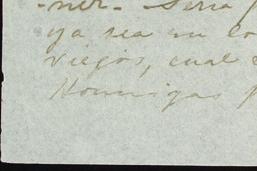 -ner- Seria
ya sea en lo
viejos, cual
Hormigas